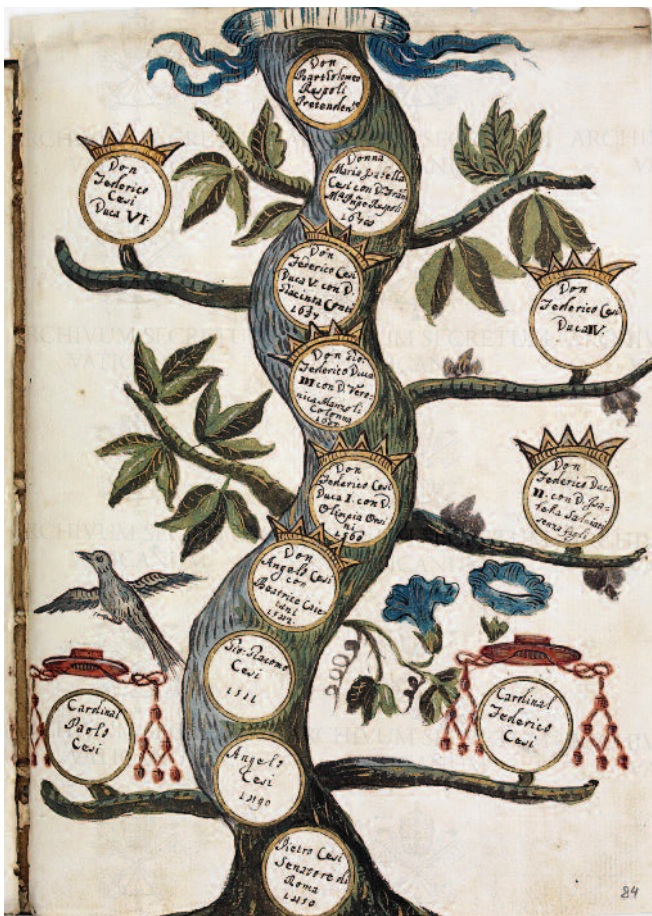 Don
Bartolomeo
Rospoli
Pretenden^te
Donna
Maria Isabella
Cesi con D. Fran
Rospoli
Don
Federico
Cesi
Duca VI.
Don
Federico Cesi
Duca V. con D.
Giacinta Conti
1637
Don
Federico Cesi
Duca IV.
Don Gio.
Federico Duca
III con D. Vero-
nica Manzoli
Colonna
Don
Federico Cesi
Duca I. con D.
Olimpia Orsi
ni
1560
Don
Federico Duca
II. con D. Isa-
bella Salviati
senza figli
Don
Angelo Cesi
con
Beatrice Caie
tani
Gio. Giacomo
Cesi
1511
Cardinal
Paolo
Cesi
Cardinal
Federico
Cesi
Angelo
Cesi
1490
Pietro Cesi
Senatore di
Roma
1450
84
ARCHIVUM SECRETUM
VATICANUM